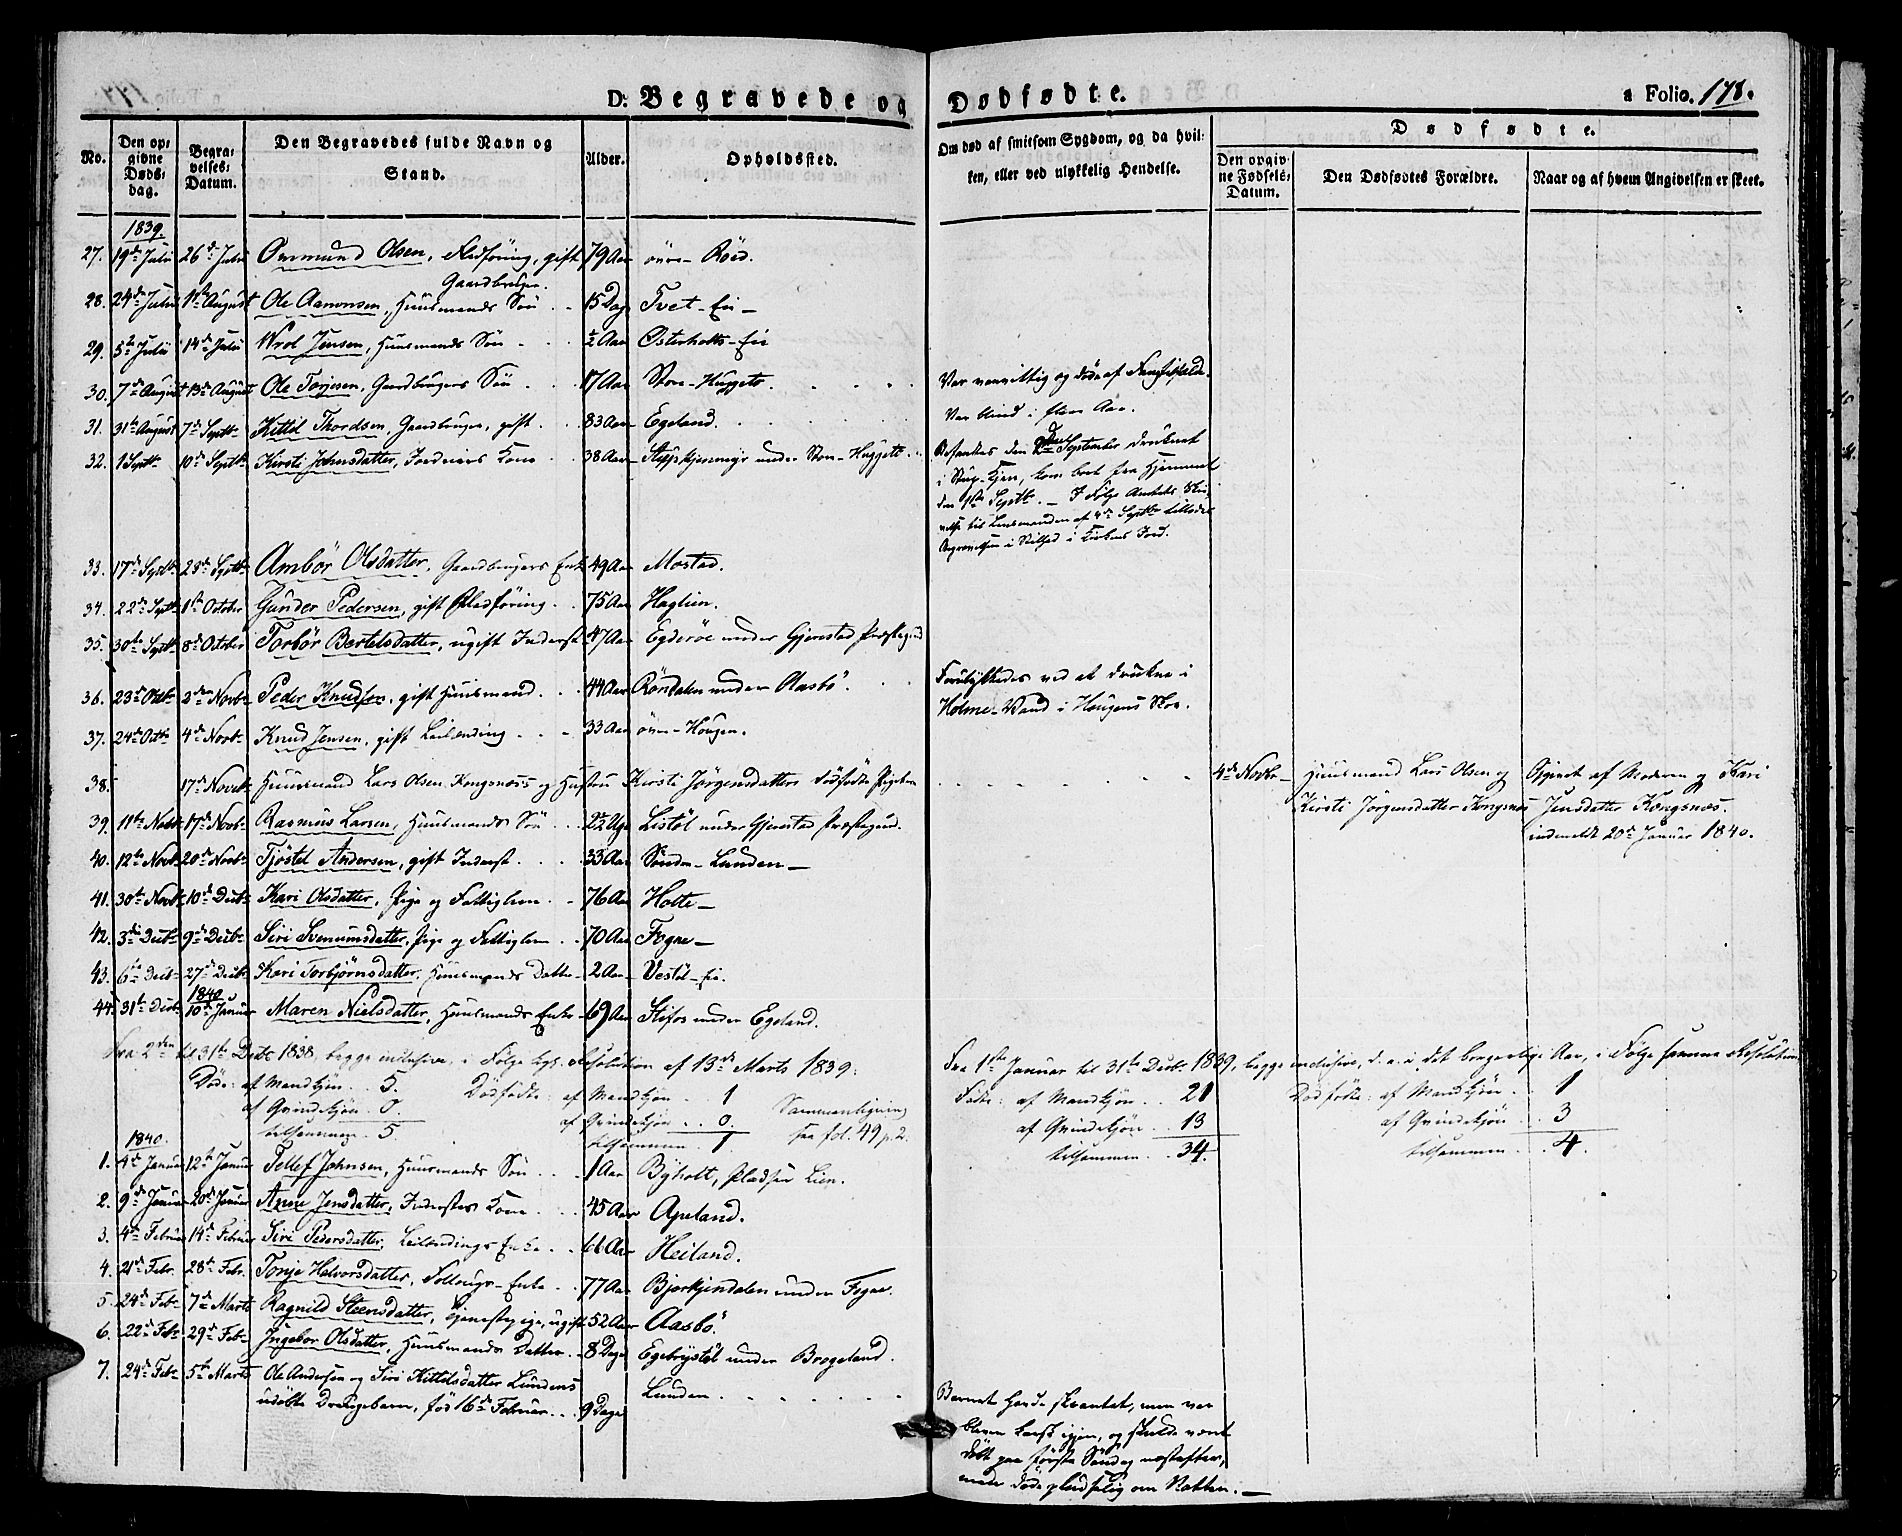 D: Begravede og Dødfødte. a Folio. 178.
No. Den opgivne Dødsdag. Begravelses-Datum. Den Begravedes fulde Navn og Stand. Alder. Opholdssted. Om død af smitsom Sygdom, og da hvilken, eller ved ulykkelig Hendelse. Dødfødte. Den opgivne Fødsels-Datum. Den Dødfødtes Forældre. Naar og af hvem Angivelsen er skeet.
1839.
27. 19de Julii 26de Julii Ommund Olsen, Fledføring, gift Gaardbruger. 79 Aar øvre-Röed.
28. 24de Julii 1ste August Ole Aanonsen, Huusmands Søn 15 Dage Tvet-Eie
29. 5te Julii 14de Julii Wrol Jensen, Huusmands Søn ½ Aar Østerholts-Eie
30. 7de August 13de August Ole Torjesen, Gaardbrugers Søn 17 Aar Store-Huggeto. Var vanvittig og døde af
31. 31te August 7de Septbr Kittel Thordsen, Gaardbruger, gift 83 Aar Egeland. Var blind i flere Aar.
32. 1 Septbr 10de Septbr Kirsti Johnsdatter, Inderstes Kone 38 Aar under Store-Huggeto. Befandtes den 2den September druknet
i Kjen, kom bort fra Hjemmet
den 1ste Septbr. – I Følge Amtets Skri-
velse til Lensmanden af 4de Septbr tillodes
Begravelsen i Stilhed i Kirkens Jord.
33. 17de Septbr 23de Septbr Ambör Olsdatter, Gaardbrugers Enke 49 Aar Mostad.
34. 22de Septbr 1ste October Gunder Pedersen, gift Fledföring 75 Aar Haglien.
35. 30te Septbr 8de October Torbör Bertelsdatter, ugift Inderst 47 Aar Egderöe under Gjerestad Præstegjeld
36. 23de Octbr 2den Novbr Peder Knudsen, gift Huusmand 44 Aar Röndalen under Aasbö. Forulykkedes ved at drukne i
Holme-Vand i Hougens Skov.
37. 24de Octbr 4de Novbr Knud Jensen, gift Leilænding 33 Aar övre-Hougen.
38. 17de Novbr Huusmand Lars Olsen Kongsnæss og Hustru Kirsti Jörgensdatters dödfödte Pigebarn 4de Novbr Huusmand Lars Olsen og Kirsti Jörgensdatter Kongsnæs Opgivet af Moderen og Kari Jensdatter Kongsnæs indmeldt 20de Januar 1840.
39. 11te Novbr 17de Novbr Rasmus Larsen, Huusmands Søn Uge Listöl under Gjerestad Præstegjeld.
40. 12te Novbr 20de Novbr Tjöstel Andersen, gift Inderst 33 Aar Søndre-Lunden
41. 30te Novbr 10de Decbr Kari Olsdatter, Pige og Fattiglem 76 Aar Holte
42. 3de Decbr 9de Decbr Siri Svenumsdatter, Pige og Fattiglem 70 Aar Fogne
43. 6te Decbr 27de Decbr Kari Torbjörnsdatter, Huusmands Datter 2 Aar Vestöl-Eie.
44. 31te Decbr 1840 10de Januar Maren Nielsdatter, Huusmands Enke 69 Aar Stifos under Egeland.
Fra 2den til 31te Decbr 1838, begge inclusive, i Følge kgl. Resolution af 13de Marts 1839:
Døde: af Mandkjøn 5. Dödfödte: af Mandkjøn 1
af Qvindekjøn 0. af Qvindekjøn 0. Sammenligning
tilsammen 5 tilsammen 1. fol. 49 p. 2.
Fra 1ste Januar til 31te Decbr 1839, begge inclusive, d. e. i det borgerlige Aar, i Følge samme Resolution
Födte: af Mandkjön 21 Dödfödte: af Mandkjön 1
af Qvindekjön 13 af Qvindekjön 3
tilsammen 34. tilsammen 4.
1840.
1. 4de Januar 12te Januar Tellef Johnsen, Huusmands Søn 1 Aar Byholt, Pladsen Lien.
2. 9de Januar 20de Januar Anne Jensdatter, Inderstes Kone 45 Aar Apeland.
3. 4de Februar 14de Februar Siri Pedersdatter, Leilændings Enke 66 Aar Heiland.
4. 21de Febr. 28de Febr. Tonje Halvorsdatter, Enke 77 Aar Bjorkjendalen under Fogne.
5. 24de Febr 7de Marts Ragnild Steensdatter, Tjenestepige, ugift 52 Aar Aasbö.
6. 22de Febr 29de Febr Ingebor Olsdatter, Huusmands Datter 8 Dage Egebrystöl under Brogeland.
7. 24de Febr 5te Marts Ole Andersen og Siri Kittelsdatter Lundens
udöbte Drengebarn, föd 16de Februar 9 Dage Lunden Barnet havde skrantet, men var
bleven karsk igjen, og skulde været
döbt paa förste Söndag næstefter,
men döde pludselig om Natten.